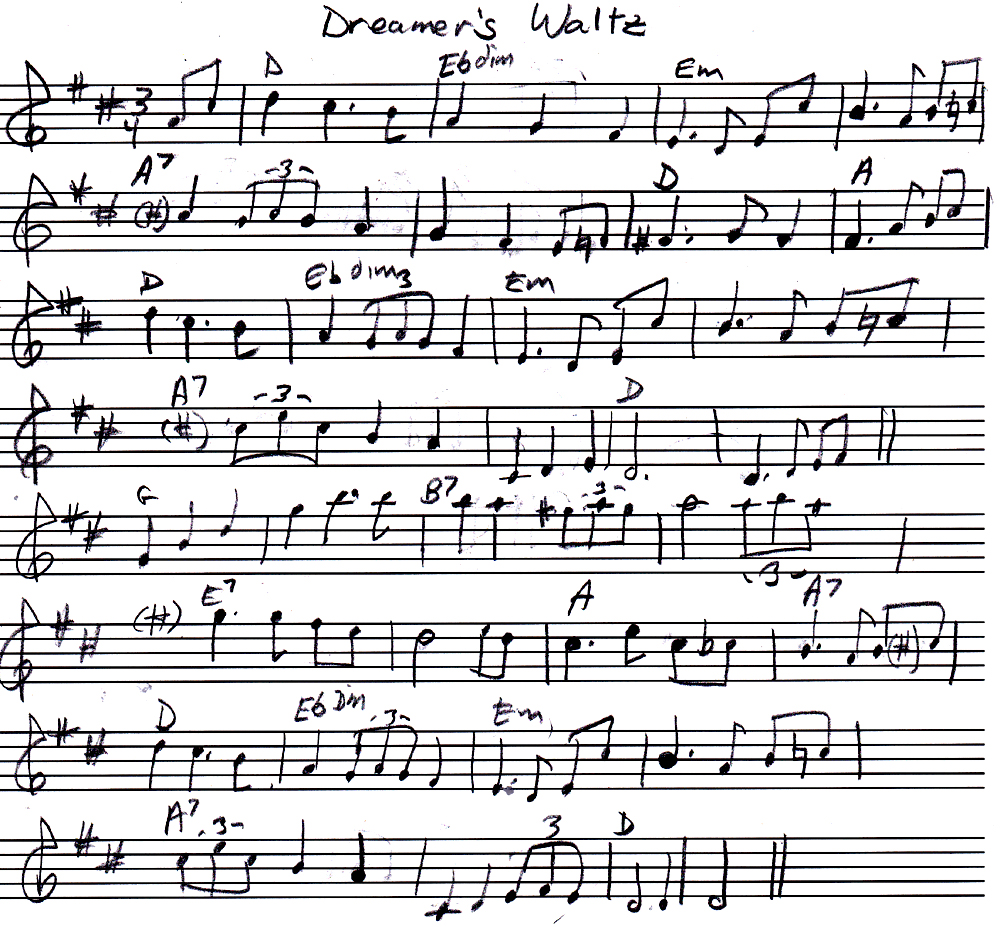 Dreamer's Waltz
D Ebdim Em
3
4
A7 3 D A
D Ebdim 3 Em
A7 3 D
G B7 3
3
E7 A A7
D Eb Dim 3 Em
A7 3 3 D